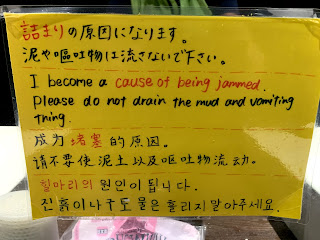 詰まりの原因になります。
泥や嘔吐物は流さないで下さい。
I become a cause of being jammed.
Please do not drain the mud and vomiting
thing.
成为堵塞的原因。
请不要使泥土以及呕吐物流动。
힐마리의 원인이 됩니다.
진흙이나 구토물은 흘리지 말아주세요.